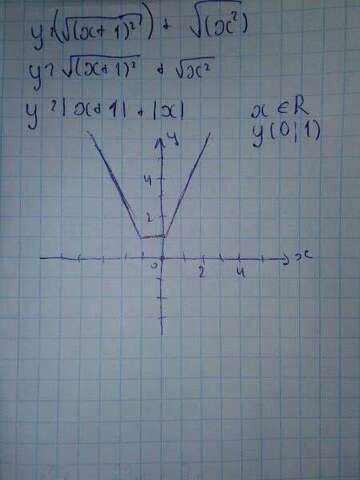 y=(√(x+1)²) + √(x²)
y=√(x+1)² + √x²
y=|x+1|+|x|
x∈R
y(0;1)
y
4
2
0 2 4 x